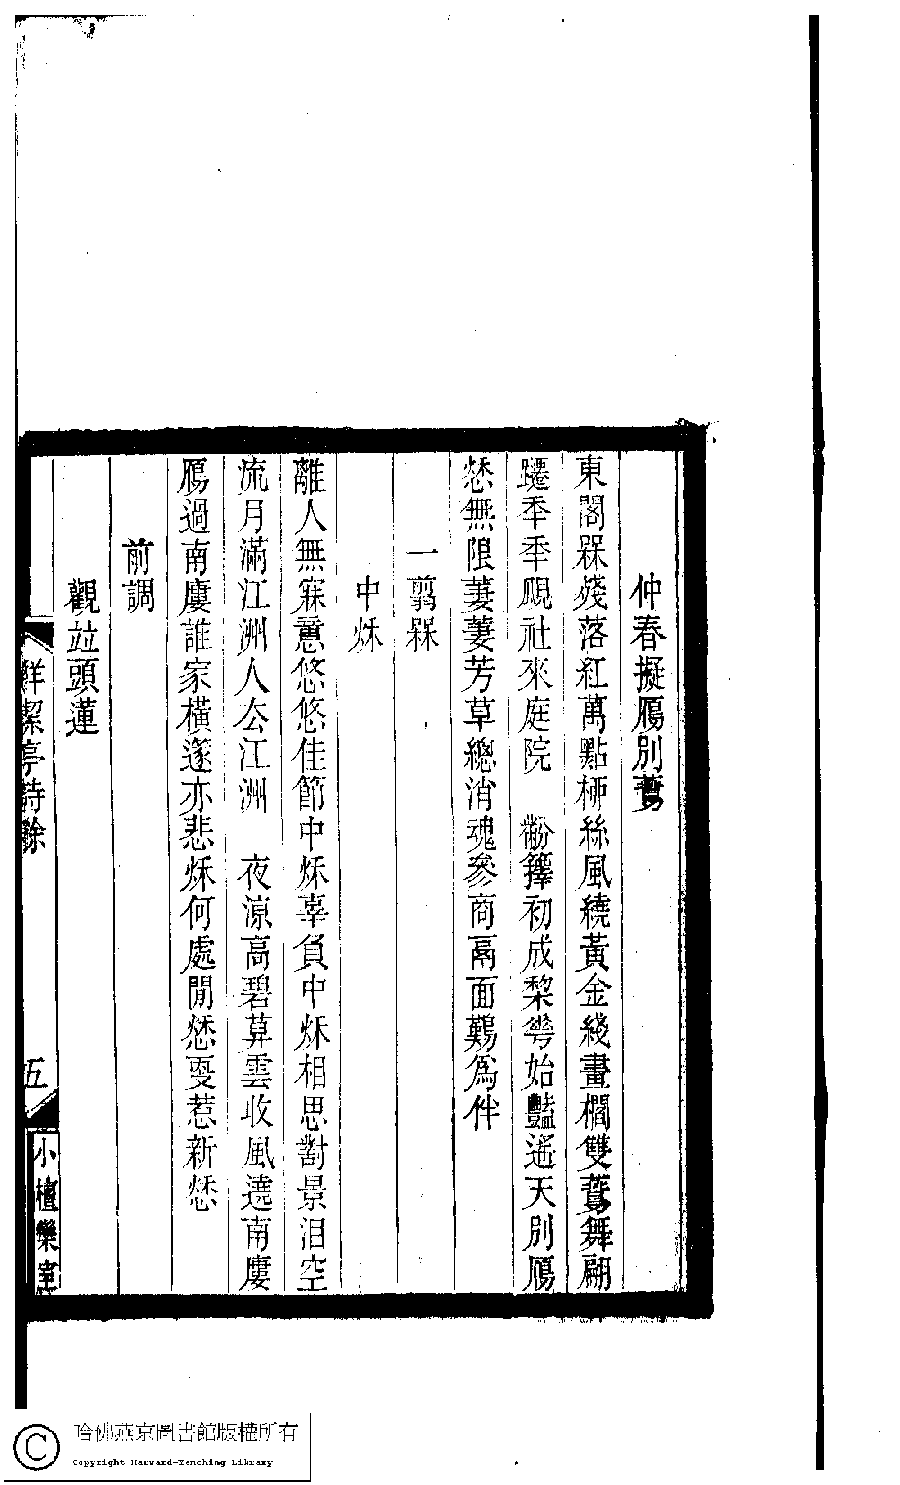 仲春擬鴈別鷰
東閣槑殘落紅萬點桺絲風繞黃金綫畫櫩雙鷰舞翩
躚秊秊覞社來庭院　黺籜初成棃𠌶始豔遥天別鴈
愁無限萋萋芳草總消魂參商鬲面難爲伴
一翦槑
中秌
離人無寐悥悠悠佳節中秌辜負中秌相思對景泪空
流月滿江洲人厺江洲　夜涼高碧莫雲收風遶南廔
鴈過南廔誰家橫篴亦悲秌何處閒愁㪅惹新愁
前調
觀竝頭蓮
鮮潔亭詩餘
五
小檀欒室
哈佛燕京圖書館版權所有
Copyright Harvard-Yenching Library